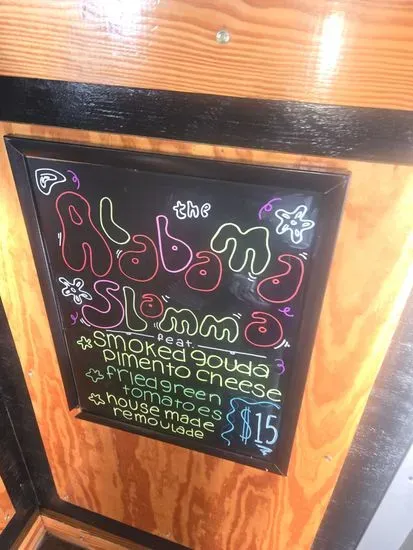 the
Alabama
Slamma
feat.
smoked gouda
pimento cheese
fried green
tomatoes
house made
remoulade
$15